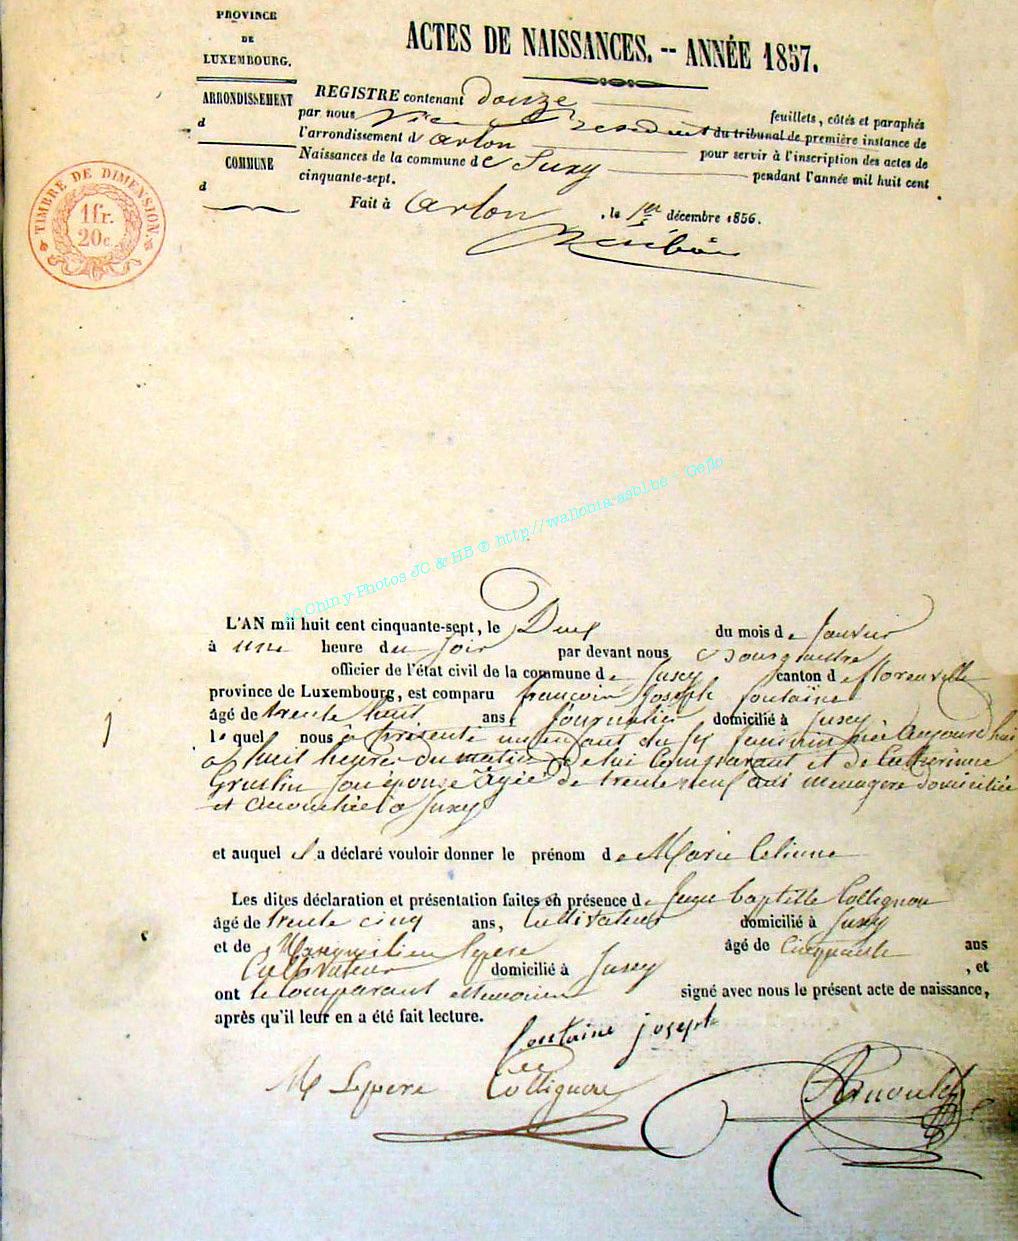 PROVINCE
DE
LUXEMBOURG.
ACTES DE NAISSANCES. -- ANNÉE 1857.
ARRONDISSEMENT
d
COMMUNE
d
TIMBRE DE DIMENSION.
1 fr.
20 c.
REGISTRE contenant douze feuillets, côtés et paraphés
par nous Vice Président du tribunal de première instance de
l'arrondissement d'Arlon pour servir à l'inscription des actes de
Naissances de la commune de Suxy pendant l'année mil huit cent
cinquante-sept.
Fait à Arlon, le 1er décembre 1856.
AC Chiny-Photos JC & HB © http://wallonia-asbl.be - Geflo
L'AN mil huit cent cinquante-sept, le Deux du mois de Janvier
à une heure du soir par devant nous Bourgmestre
officier de l'état civil de la commune de Suxy canton de florenville
province de Luxembourg, est comparu françois Joseph fontaine
âgé de trente huit ans, Journalier domicilié à Suxy
lequel nous a présenté un enfant du né Aujourd'hui
à huit heures du matin de lui Comparant et de Catherinne
son épouse Agée de trente neuf ans menagère domiciliée
et accouchée à Suxy
et auquel il a déclaré vouloir donner le prénom de Marie Celinne
Les dites déclaration et présentation faites en présence de Jean baptiste Collignon
âgé de trente cinq ans, Cultivateur domicilié à Suxy
et de Maximilien lepere âgé de Cinquante ans
Cultivateur domicilié à Suxy, et
ont le comparant et temoins signé avec nous le présent acte de naissance,
après qu'il leur en a été fait lecture.
fontaine joseph
M Lepere Collignon Arnould